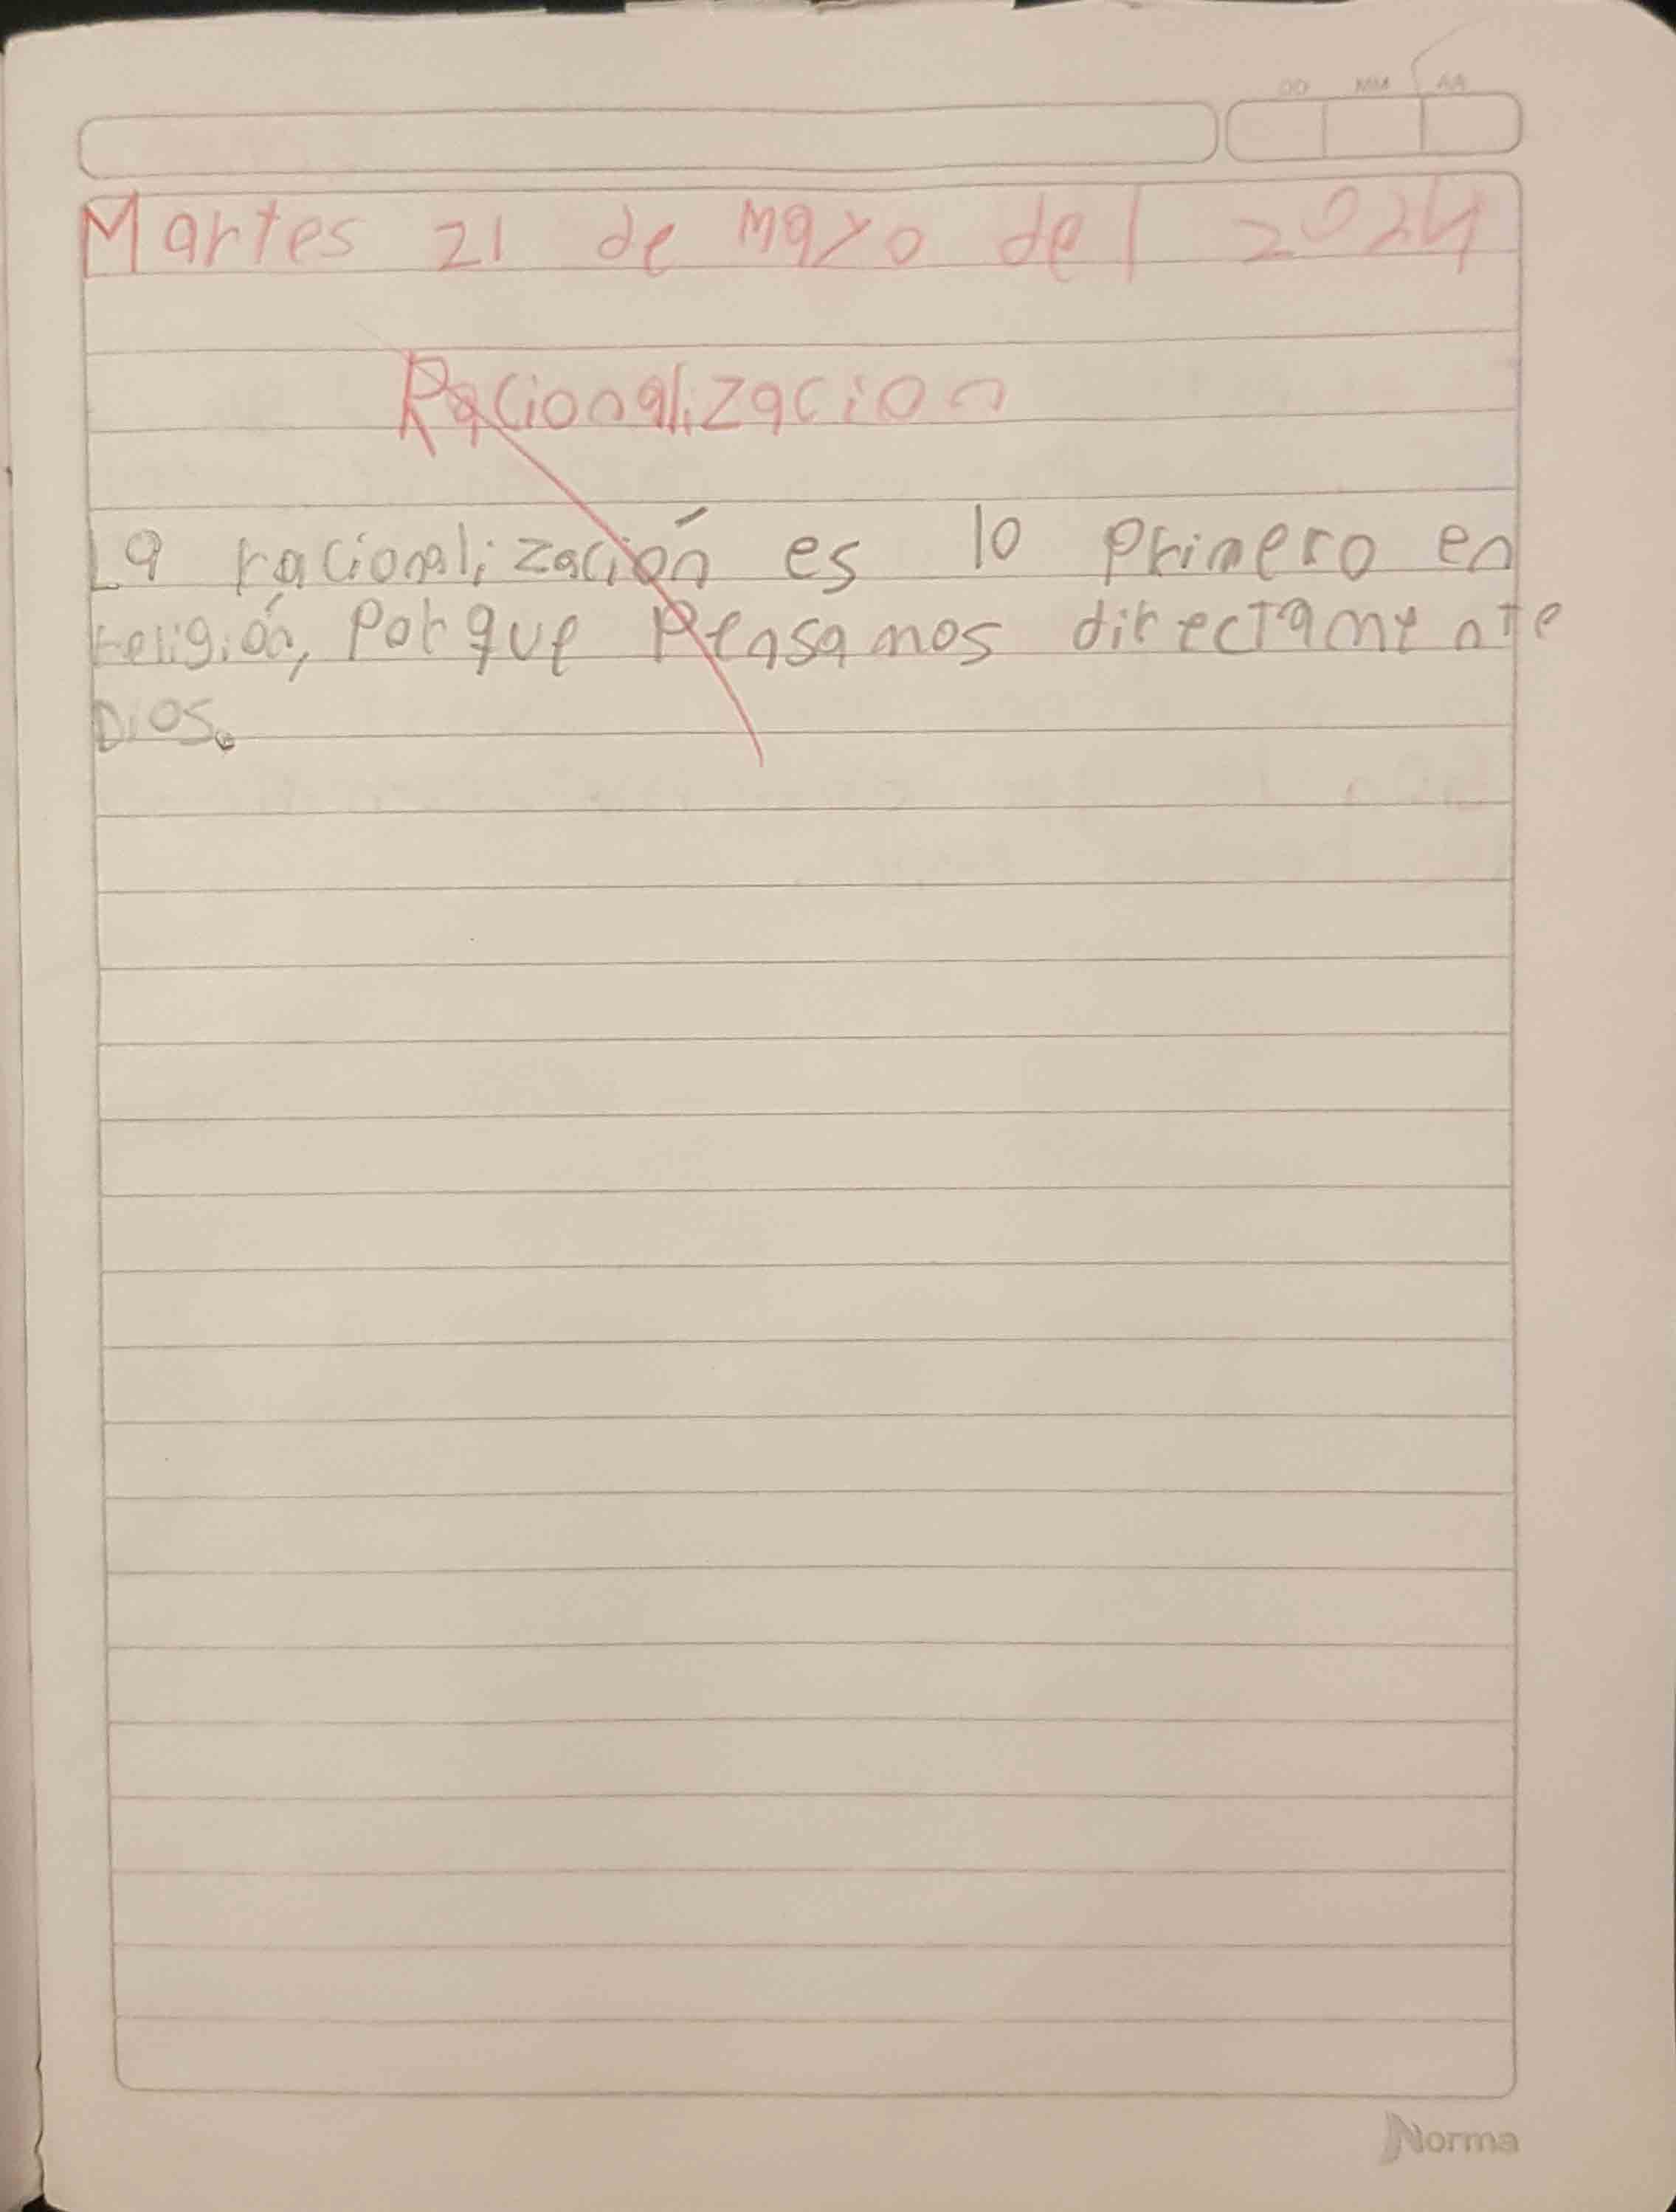 DD MM AA
Martes 21 de mayo del 2024
Racionalizacion
La racionalización es lo primero en
religión, Porque Pensamos directamente
Dios.
Norma